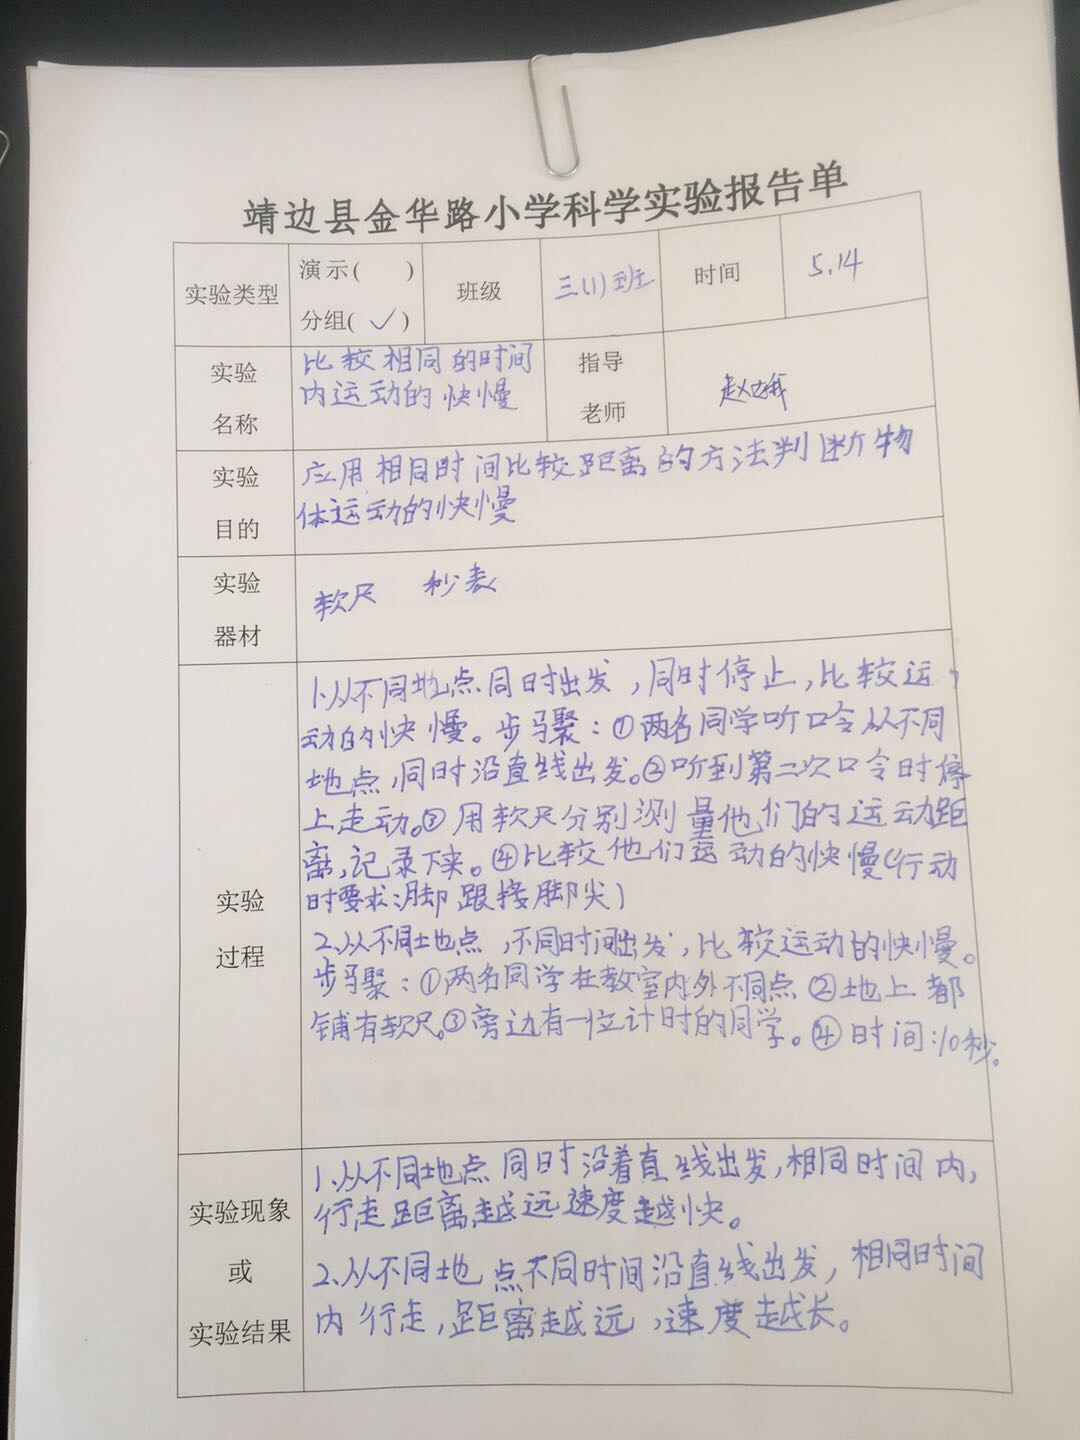 靖边县金华路小学科学实验报告单
实验类型 演示( ) 分组(✓) 班级 三(1)班 时间 5.14
实验名称 比较相同的时间
内运动的快慢 指导老师
实验目的 应用相同时间比较距离的方法判断物
体运动的快慢
实验器材 软尺 秒表
实验过程 1.从不同地点同时出发,同时停止,比较运
动的快慢。步骤:①两名同学听口令从不同
地点,同时沿直线出发。②听到第二次口令时停
上走动。③用软尺分别测量他们的运动距
离,记录下来。④比较他们运动的快慢(行动
时要求:脚跟接脚尖)
2.从不同地点,不同时间出发,比较运动的快慢。
步骤:①两名同学在教室内外不同点②地上都
铺有软尺。③旁边有一位计时的同学。④时间:10秒。
实验现象或实验结果 1.从不同地点同时沿着直线出发,相同时间内,
行走距离越远速度越快。
2.从不同地点不同时间沿直线出发,相同时间
内行走,距离越远,速度越长。